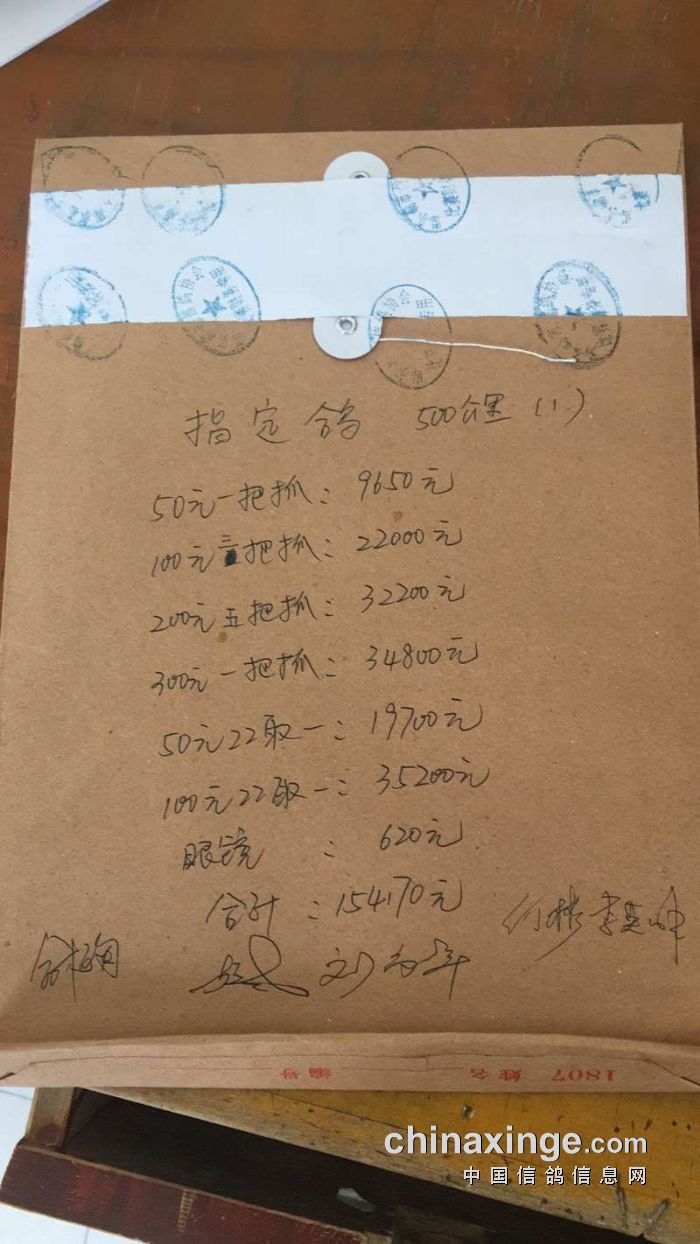 指定鸽 500公里(1)
50元一把抓：9650元
100元三把抓：22000元
200元五把抓：32200元
300元一把抓：34800元
50元22取一：19700元
100元22取一：35200元
眼镜：620元
合计：154170元
1807 姓名 编号
chinaxinge.com
中国信鸽信息网